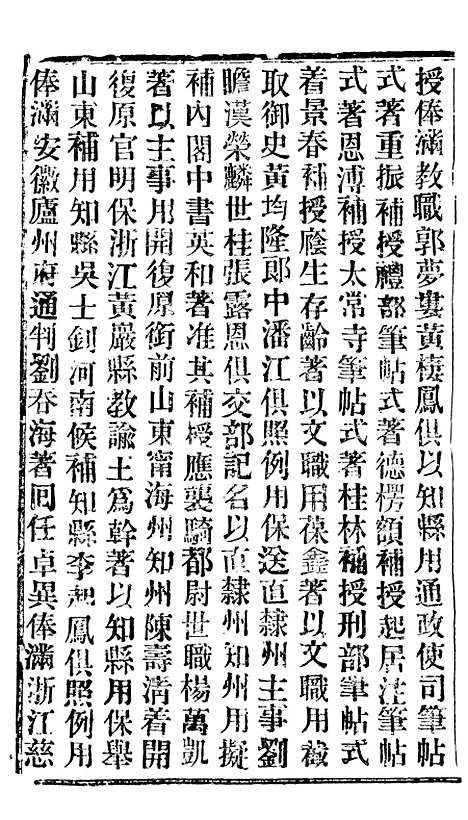 授俸滿教職郭夢婁黃棲鳳俱以知縣用通政使司筆帖
式著重振補授禮部筆帖式著德楞額補授起居注筆帖
式著恩溥補授太常寺筆帖式著桂林補授刑部筆帖式
着景春補授廕生存齡著以文職用葆鑫著以文職用截
取御史黃均隆郎中潘江俱照例用保送直隸州主事劉
瞻漢榮麟世桂張露恩俱交部記名以直隸州知州用擬
補內閣中書英和著准其補授應襲騎都尉世職楊萬凱
著以主事用開復原銜前山東甯海州知州陳壽淸着開
復原官明保浙江黃巖縣教諭王爲幹著以知縣用保舉
山東補用知縣吳士釗河南候補知縣李起鳳俱照例用
俸滿安徽廬州府通判劉春海著回任卓異俸滿浙江慈